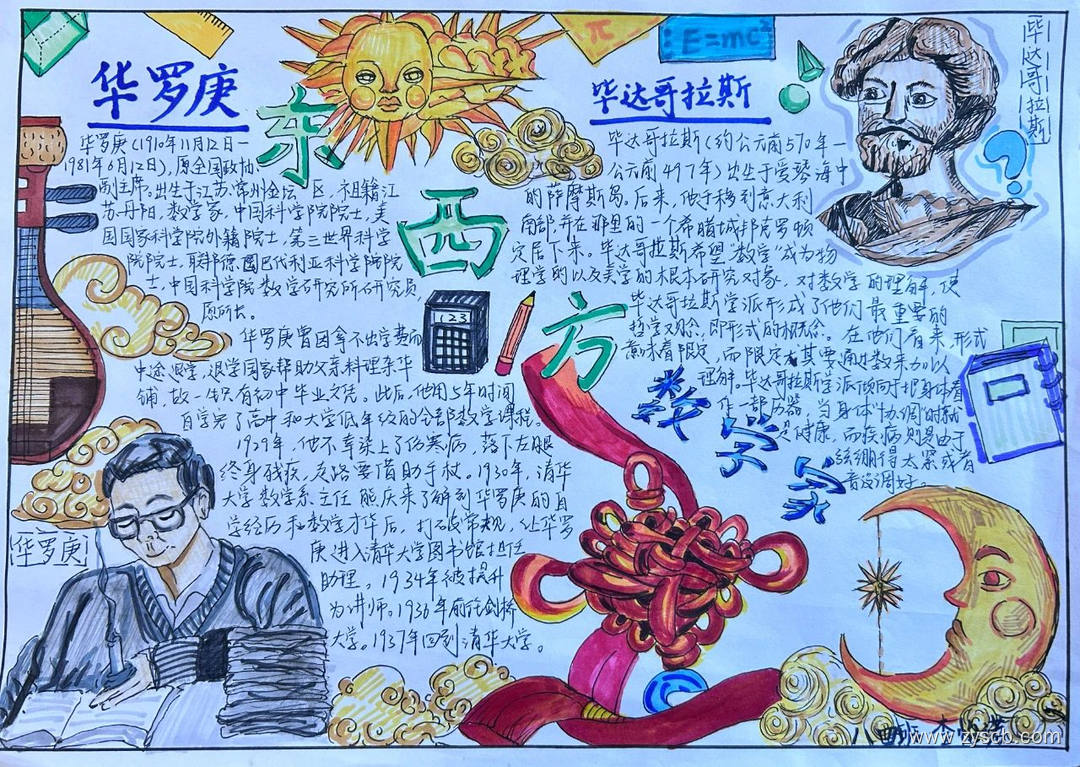 华罗庚
华罗庚(1910年11月12日—
1981年6月12日),原全国政协
副主席。出生于江苏常州金坛区,祖籍江
苏丹阳,数学家,中国科学院院士,美
国国家科学院外籍院士,第三世界科学
院院士,联邦德国巴伐利亚科学院院
士,中国科学院数学研究所研究员、
原所长。
华罗庚曾因拿不出学费而
中途退学,退学回家帮助父亲料理杂华
铺,故一生只有初中毕业文凭。此后,他用5年时间
自学完了高中和大学低年级的全部数学课程。
1929年,他不幸染上了伤寒病,落下左腿
终身残疾,走路要借助手杖。1930年,清华
大学数学系主任熊庆来了解到华罗庚的自
学经历和数学才华后,打破常规,让华罗
庚进入清华大学图书馆担任
助理。1934年被提升
为讲师。1936年前往剑桥
大学。1937年回到清华大学。
华罗庚
东
西
方
数
学
家
123
π
E=mc²
毕达哥拉斯
毕达哥拉斯(约公元前570年—
公元前497年)出生于爱琴海中
的萨摩斯岛。后来,他于移到意大利
南部,并在那里的一个希腊城邦克罗顿
定居下来。毕达哥拉斯希望"数学"成为物
理学的以及美学的根本研究对象。对数学的理解,使
毕达哥拉斯学派形成了他们最重要的
哲学观念,即形式的概念。在他们看来,形式
意味着限定,而限定尤其要通过数来加以
理解。毕达哥拉斯学派倾向于把身体看
作一部乐器,当身体协调时就
健康,而疾病则是由于
弦绷得太紧或者
音没调好。
毕达哥拉斯
?
八四班
www.zyscb.com